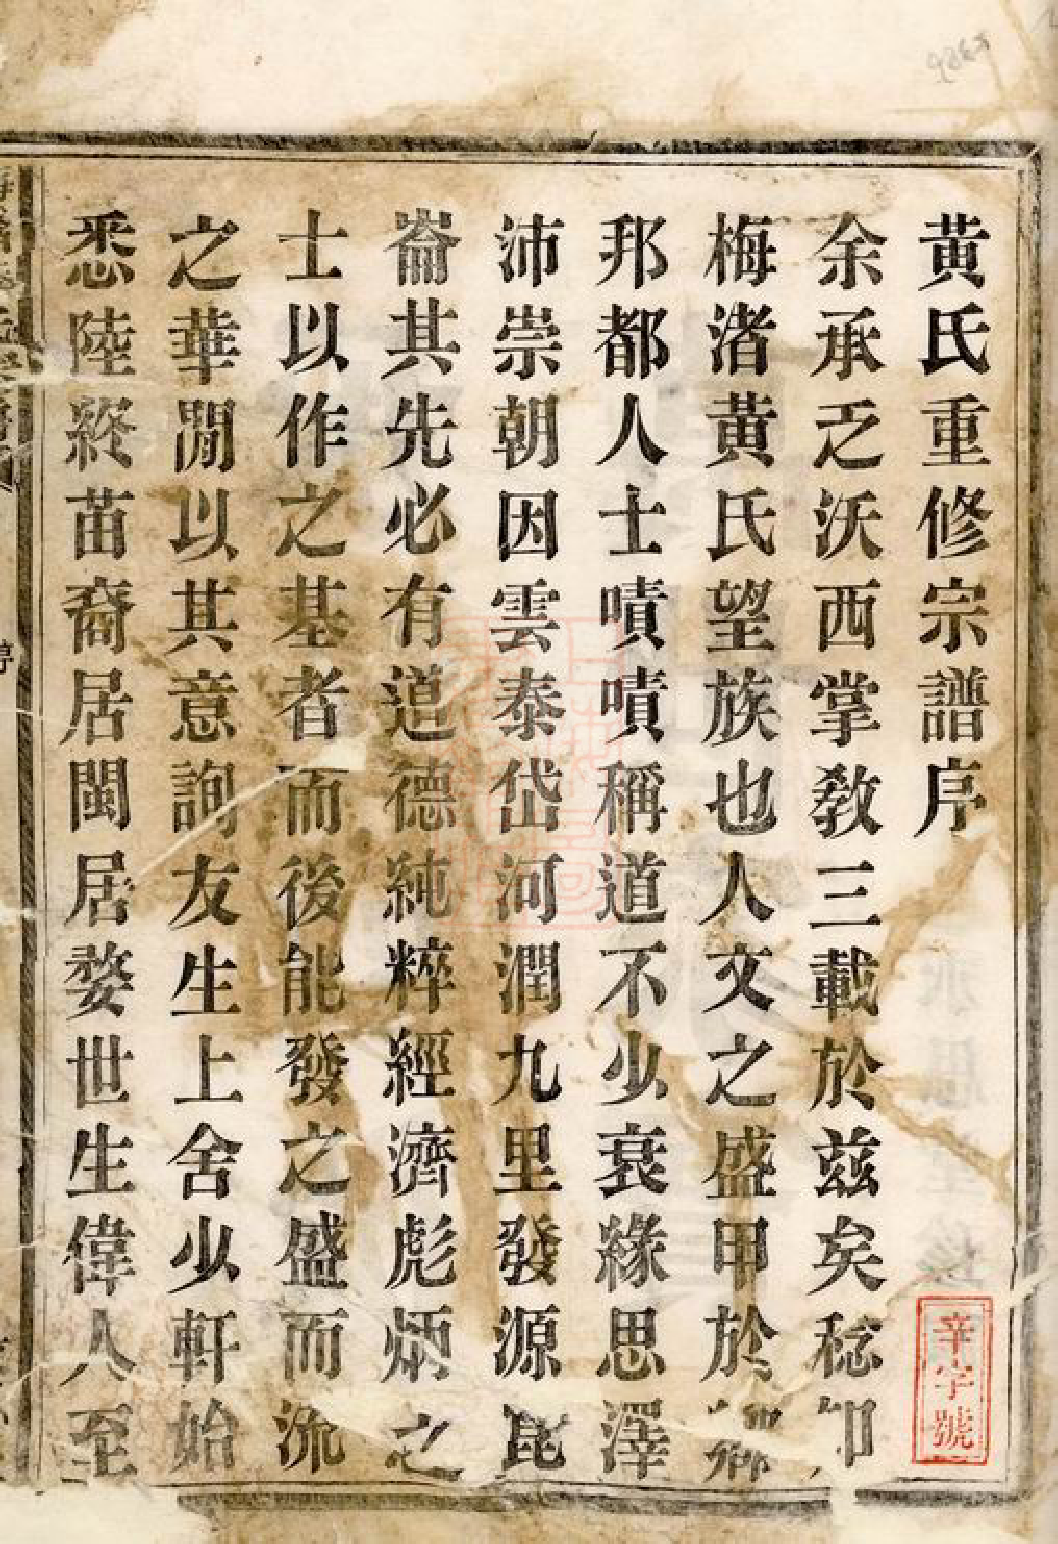 黃氏重修宗譜序
余承乏沃西掌敎三載於茲矣稔知
梅渚黃氏望族也人文之盛甲於鄉
邦都人士嘖嘖稱道不少衰緣思澤
沛崇朝因雲泰岱河潤九里發源崑
崙其先必有道德純粹經濟彪炳之
士以作之基者而後能發之盛而流
之華閒以其意詢友生上舍少軒始
悉陸終苗裔居閩居婺世生偉人至
辛字號